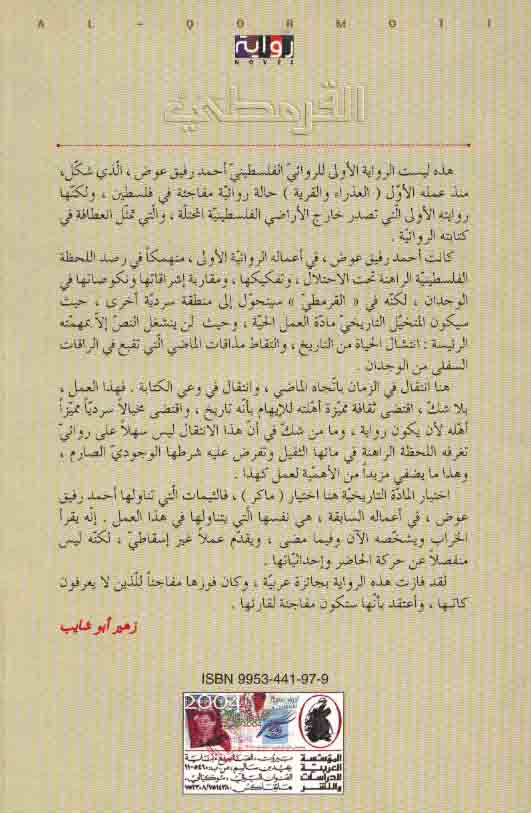 AL-QORMOTI
رواية
NOVEL
القرمطي
هذه ليست الرواية الأولى للروائيّ الفلسطينيّ أحمد رفيق عوض ، الّذي شكّل،
منذ عمله الأوّل ( العذراء والقرية ) حالة روائيّة مفاجئة في فلسطين ، ولكنّها
روايته الأولى الّتي تصدر خارج الأراضي الفلسطينيّة المحتلّة ، والّتي تمثّل انعطافة في
كتابته الروائيّة .
كانت أحمد رفيق عوض ، في أعماله الروائيّة الأولى ، منهمكاً في رصد اللحظة
الفلسطينيّة الراهنة تحت الاحتلال ، وتفكيكها ، ومقاربة إشراقاتها ونكوصاتها في
الوجدان ، لكنّه في « القرمطيّ » سيتحوّل إلى منطقة سرديّة أخرى ، حيث
سيكون المتخيّل التاريخيّ مادّة العمل الحيّة ، وحيث لن ينشغل النصّ إلاّ بمهمّته
الرئيسة : انتشال الحياة من التاريخ ، والتقاط مذاقات الماضي الّتي تقبع في الراقات
السفلى من الوجدان .
هنا انتقال في الزمان باتّجاه الماضي ، وانتقال في وعي الكتابة . فهذا العمل ،
بلا شكّ ، اقتضى ثقافة مميّزة أهّلته للإيهام بأنّه تاريخ ، واقتضى مخيالاً سرديّاً مميّزاً
أهّله لأن يكون رواية ، وما من شكّ في أنّ هذا الانتقال ليس سهلاً على روائيّ
تغرقه اللحظة الراهنة في مائها الثقيل وتفرض عليه شرطها الوجوديّ الصارم ،
وهذا ما يضفي مزيداً من الأهمّية لعمل كهذا .
اختيار المادّة التاريخيّة هنا اختيار ( ماكر ) ، فالثيمات الّتي تناولها أحمد رفيق
عوض ، في أعماله السابقة ، هي نفسها الّتي يتناولها في هذا العمل . إنّه يقرأ
الخراب ويشخّصه الآن وفيما مضى ، ويقدّم عملاً غير إسقاطيّ ، لكنّه ليس
منفصلاً عن حركة الحاضر وإحداثيّاتها .
لقد فازت هذه الرواية بجائزة عربيّة ، وكان فوزها مفاجئاً للّذين لا يعرفون
كاتبها ، وأعتقد بأنّها ستكون مفاجئة لقارئها .
زهير أبو شايب
ISBN 9953-441-97-9
2004
المؤسسة
العربية
للدراسات
والنشر